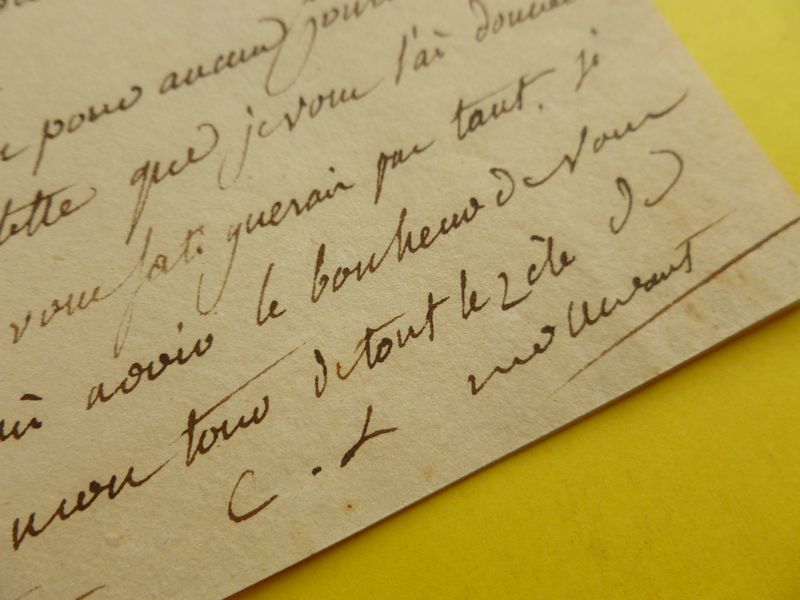 pour aucun jour
que je vous l'ai donner
vous fatiguerair par tant. je
avoir le bonheur de vous
mon tour de tout le zèle de
C. L mollevaut